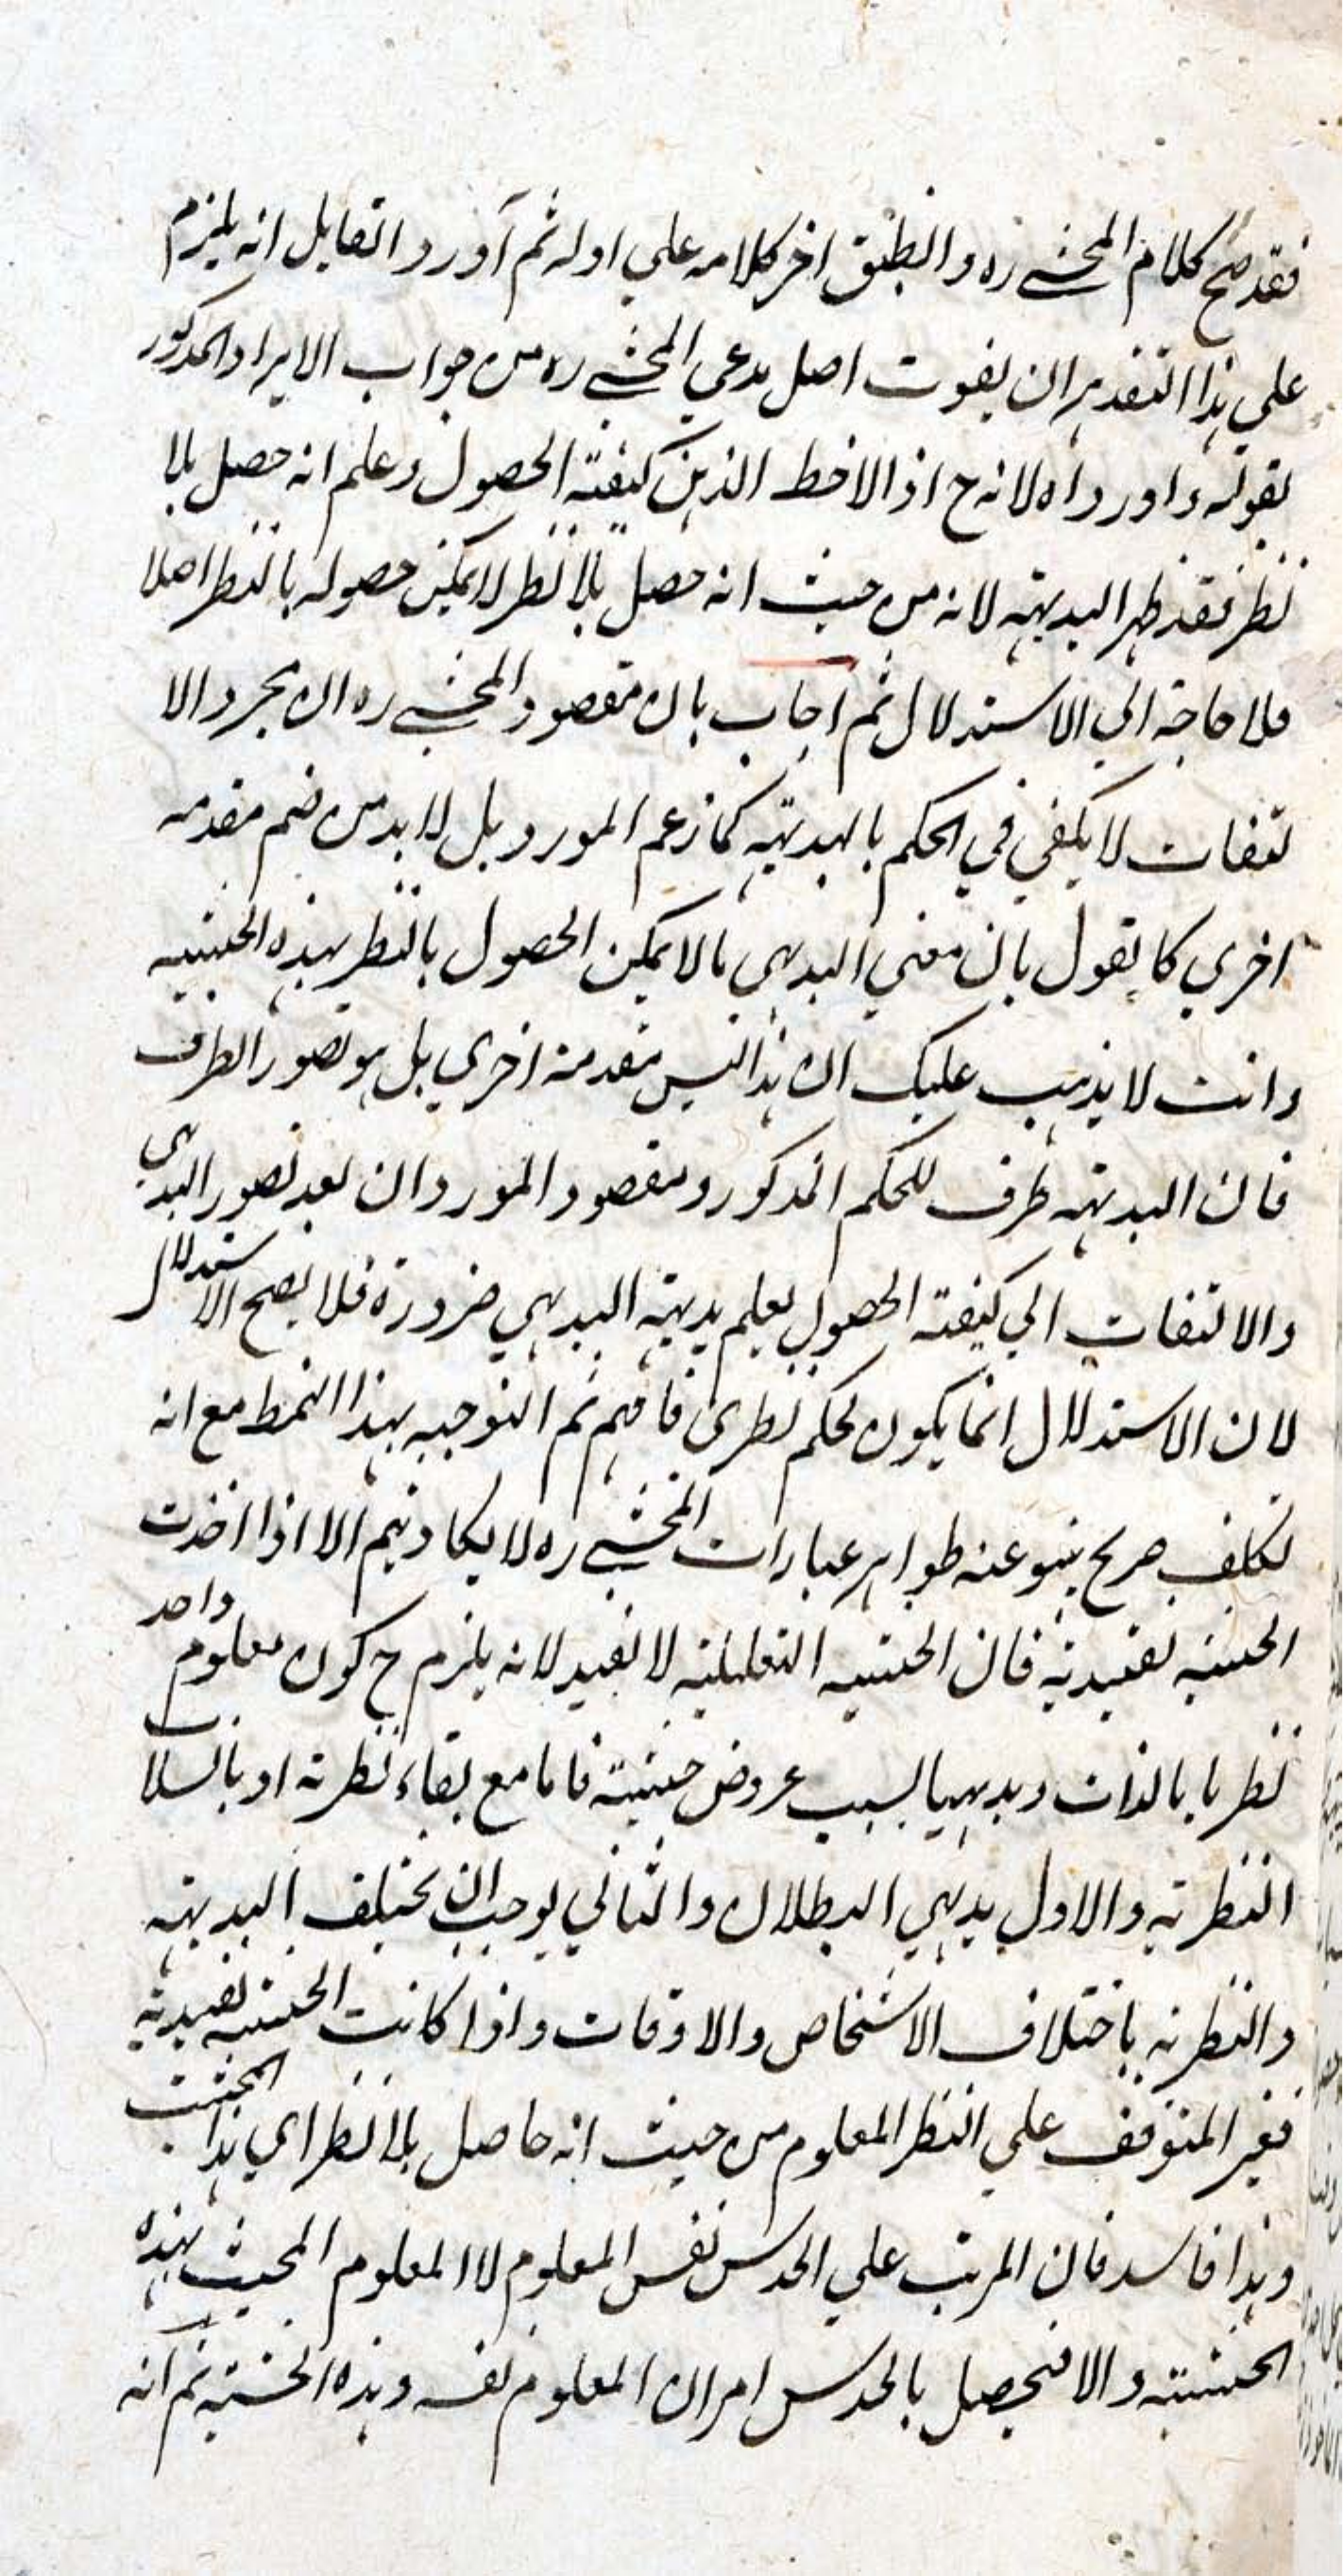 فقد صح كلام المحشي ره و انطبق اخر كلامه علي اوله ثم آورد القايل انه يلزم
علي هذا التقدير ان يفوت اصل مدعي المحشي ره من جواب الايراد المذكور
بقوله و اورد اه لانه ح اذا لاحظ الذهن كيفية الحصول و علم انه حصل بلا
نظر فقد ظهر البديهية لانه من حيث انه حصل بلا نظر لا يمكن حصوله بالنظر اصلا
فلا حاجة الي الاستدلال ثم اجاب بان مقصود المحشي ره ان مجرد الا
لتفات لا يكفي في الحكم بالبديهية كما زعم المورد بل لا بد من ضم مقدمه
اخري كا يقول بان معني البديهي ما لا يمكن الحصول بالنظر بهذه الحيثيه
و انت لا يذهب عليك ان هذا ليس مقدمة اخري بل هو تصور الطرف
فان البديهية طرف للحكم المذكور و مقصود المورد ان بعد تصور البديهي
و الالتفات الي كيفية الحصول يعلم بديهية البديهي ضرورة فلا يصح الاستدلال
لان الاستدلال انما يكون لحكم نظري فافهم ثم التوجيه بهذا النمط مع انه
تكلف صريح ينبو عنه ظواهر عبارات المحشي ره لا يكاد يتم الا اذا اخذت
الحيثية تقييدية فان الحيثيه التعليلية لا تفيد لانه يلزم ح كون معلوم واحد
نظريا بالذات و بديهيا بسبب عروض حيثية فاما مع بقاء نظرية او بانسلاب
النظرية و الاول بديهي البطلان و الثاني يوجب ان يختلف البديهية
و النظرية باختلاف الاشخاص و الاوقات و اذا كانت الحيثيه تقييدية
فغير المتوقف علي النظر المعلوم من حيث انه حاصل بلا نظر اي هذا المحيث
و هذا فاسد فان المرتب علي الحدس نفس المعلوم لا المعلوم المحيث بهذه
الحيثيته و الا فيحصل بالحدس امران المعلوم نفسه و هذه الحيثية ثم انه